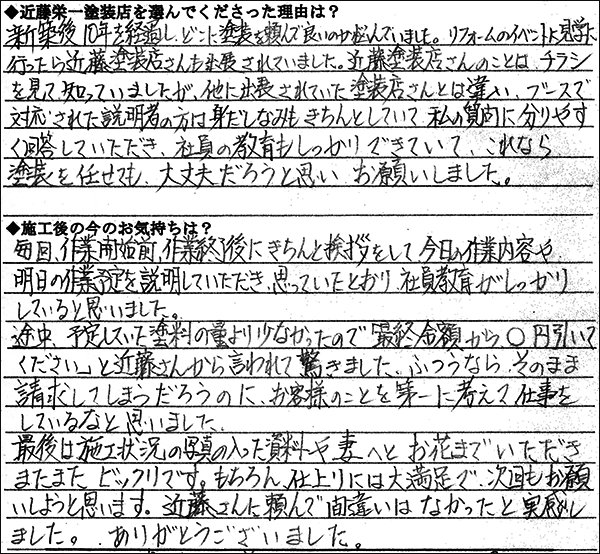 ◆近藤栄一塗装店を選んでくださった理由は？
新築後10年を経過し、どこに塗装を頼んで良いのか悩んでいました。リフォームのイベントに見学に
行ったら近藤塗装店さんも出展されていました。近藤塗装店さんのことは、チラシ
を見て知っていましたが、他に出展されていた塗装店さんとは違い、ブースで
対応された説明者の方は身だしなみもきちんとしていて、私の質問に分りやす
く回答していただき、社員の教育もしっかりできていて、これなら
塗装を任せても、大丈夫だろうと思い お願いしました。
◆施工後の今のお気持ちは？
毎回、作業開始前、作業終了後にきちんと挨拶をして、今日の作業内容や、
明日の作業予定を説明していただき、思っていたとおり 社員教育がしっかり
していると思いました。
途中、予定していた塗料の量より少なかったので「最終金額から〇円引いて
ください」と近藤さんから言われて驚きました。ふつうなら、そのまま
請求してしまうだろうのに、お客様のことを第一に考えて仕事を
しているなと思いました。
最後は施工状況の写真の入った資料や妻へと お花までいただき
またまた ビックリです。もちろん、仕上りには大満足で、次回もお願
いしようと思います。近藤さんに頼んで間違いは なかったと 実感し
ました。 ありがとうございました。